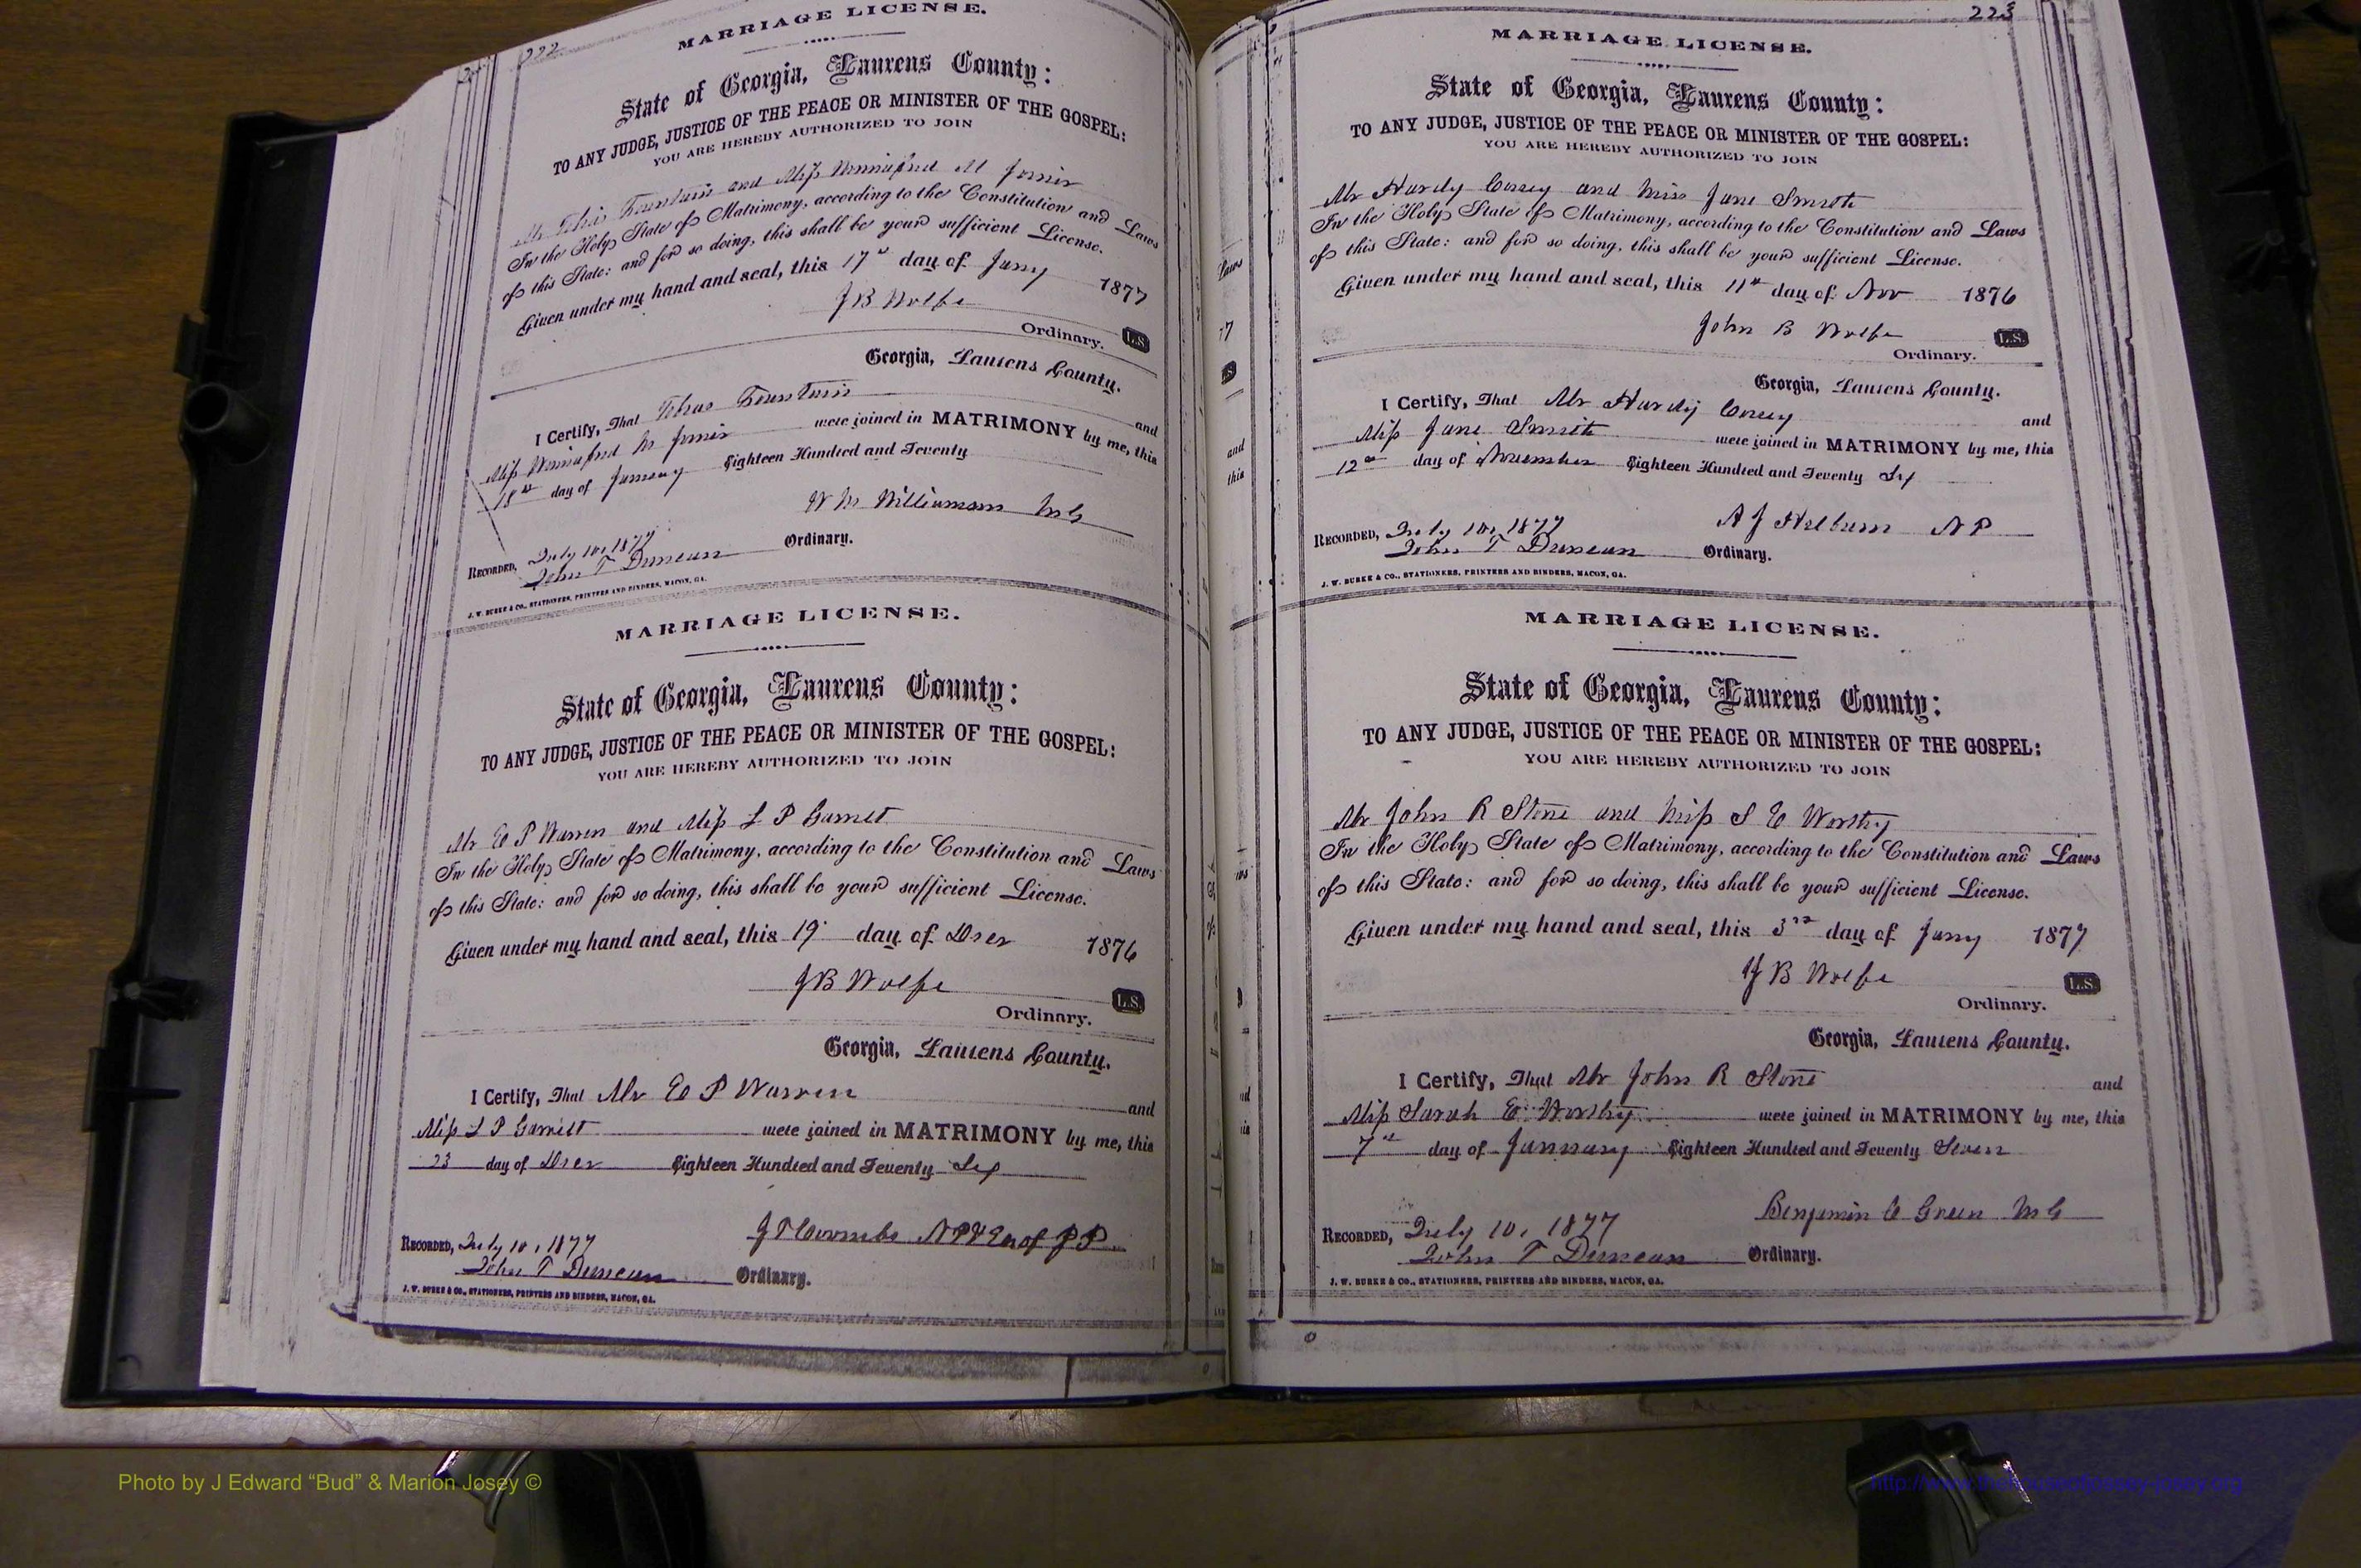 222
MARRIAGE LICENSE.
State of Georgia, Laurens County:
TO ANY JUDGE, JUSTICE OF THE PEACE OR MINISTER OF THE GOSPEL:
YOU ARE HEREBY AUTHORIZED TO JOIN
Mr Fountain and Miss M
In the Holy State of Matrimony, according to the Constitution and Laws
of this State: and for so doing, this shall be your sufficient License.
Given under my hand and seal, this 17th day of Jany 1877
J B Wolfe
Ordinary. L.S.
Georgia, Laurens County.
I Certify, That Fountain and
Miss M were joined in MATRIMONY by me, this
18th day of January Eighteen Hundred and Seventy
W M Williamson M G
RECORDED, July 10, 1877
John T Duncan Ordinary.
J. W. BURKE & CO., STATIONERS, PRINTERS AND BINDERS, MACON, GA.
MARRIAGE LICENSE.
State of Georgia, Laurens County:
TO ANY JUDGE, JUSTICE OF THE PEACE OR MINISTER OF THE GOSPEL:
YOU ARE HEREBY AUTHORIZED TO JOIN
Mr E P Warren and Miss L P Garrett
In the Holy State of Matrimony, according to the Constitution and Laws
of this State: and for so doing, this shall be your sufficient License.
Given under my hand and seal, this 19 day of Decr 1876
J B Wolfe
Ordinary. L.S.
Georgia, Laurens County.
I Certify, That Mr E P Warren and
Miss L P Garrett were joined in MATRIMONY by me, this
23 day of Decr Eighteen Hundred and Seventy Six
J T Coombs N P & Ex of J P
RECORDED, July 10, 1877
John T Duncan Ordinary.
J. W. BURKE & CO., STATIONERS, PRINTERS AND BINDERS, MACON, GA.
223
MARRIAGE LICENSE.
State of Georgia, Laurens County:
TO ANY JUDGE, JUSTICE OF THE PEACE OR MINISTER OF THE GOSPEL:
YOU ARE HEREBY AUTHORIZED TO JOIN
Mr Hardy and Miss Jane Smith
In the Holy State of Matrimony, according to the Constitution and Laws
of this State: and for so doing, this shall be your sufficient License.
Given under my hand and seal, this 11th day of Nov 1876
John B Wolfe
Ordinary. L.S.
Georgia, Laurens County.
I Certify, That Mr Hardy and
Miss Jane Smith were joined in MATRIMONY by me, this
12th day of November Eighteen Hundred and Seventy Six
A J Hilburn N P
RECORDED, July 10, 1877
John T Duncan Ordinary.
J. W. BURKE & CO., STATIONERS, PRINTERS AND BINDERS, MACON, GA.
MARRIAGE LICENSE.
State of Georgia, Laurens County:
TO ANY JUDGE, JUSTICE OF THE PEACE OR MINISTER OF THE GOSPEL:
YOU ARE HEREBY AUTHORIZED TO JOIN
Mr John R Stone and Miss S E Worthy
In the Holy State of Matrimony, according to the Constitution and Laws
of this State: and for so doing, this shall be your sufficient License.
Given under my hand and seal, this 3rd day of Jany 1877
J B Wolfe
Ordinary. L.S.
Georgia, Laurens County.
I Certify, That Mr John R Stone and
Miss Sarah E Worthy were joined in MATRIMONY by me, this
7th day of January Eighteen Hundred and Seventy Seven
Benjamin C Green M G
RECORDED, July 10, 1877
John T Duncan Ordinary.
J. W. BURKE & CO., STATIONERS, PRINTERS AND BINDERS, MACON, GA.
Photo by J Edward “Bud” & Marion Josey ©